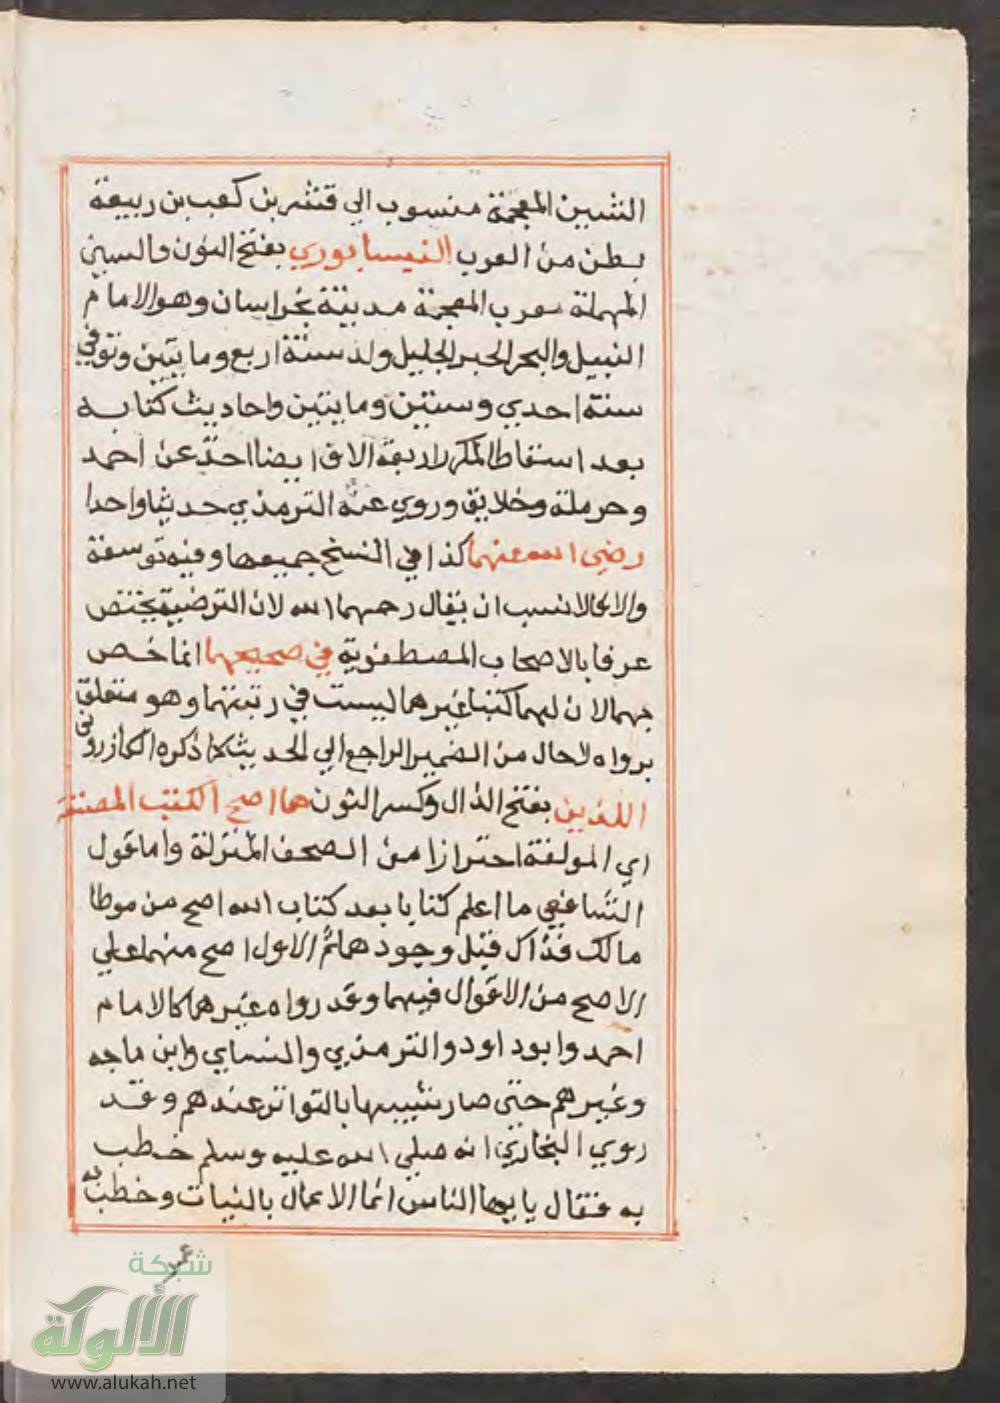 الشين المعجمة منسوب الي قشير بن كعب بن ربيعة
بطن من العرب النيسابوري بفتح النون والسين
المهملة معرب المعجمة مدينة بخراسان وهو الامام
النبيل والبحر الحبر الجليل ولد سنة اربع ومايتين وتوفي
سنة احدي وستين ومايتين واحاديث كتابه
بعد اسقاط المكرر اربعة الاف ايضا اخذ عن احمد
وحرملة وخلايق وروي عنه الترمذي حديثا واحدا
رضي الله عنهما كذا في النسخ جميعها وفيه توسعة
والا فالانسب ان يقال رحمهما الله لان الترضية يختص
عرفا بالاصحاب المصطفوية في صحيحهما انما خص
بهما لان لهما كتبا غيرهما ليست في رتبتهما وهو متعلق
برواه لا حال من الضمير الراجع الي الحديث كما ذكره الكازروني
اللذين بفتح الذال وكسر النون هما اصح الكتب المصنفة
اي المولفة احترازا من الصحف المنزلة واما قول
الشافعي ما اعلم كتابا بعد كتاب الله اصح من موطا
مالك فذاك قبل وجودهما ثم الاول اصح منهما علي
الاصح من الاقوال فيهما وقد رواه غيرهما كالامام
احمد وابو داود والترمذي والنساي وابن ماجه
وغيرهم حتي صار شبيها بالتواتر عندهم وقد
روي البخاري انه صلي الله عليه وسلم خطب
به فقال يا يها الناس انما الاعمال بالنيات وخطب به
عمر
شبكة
الألوكة
www.alukah.net